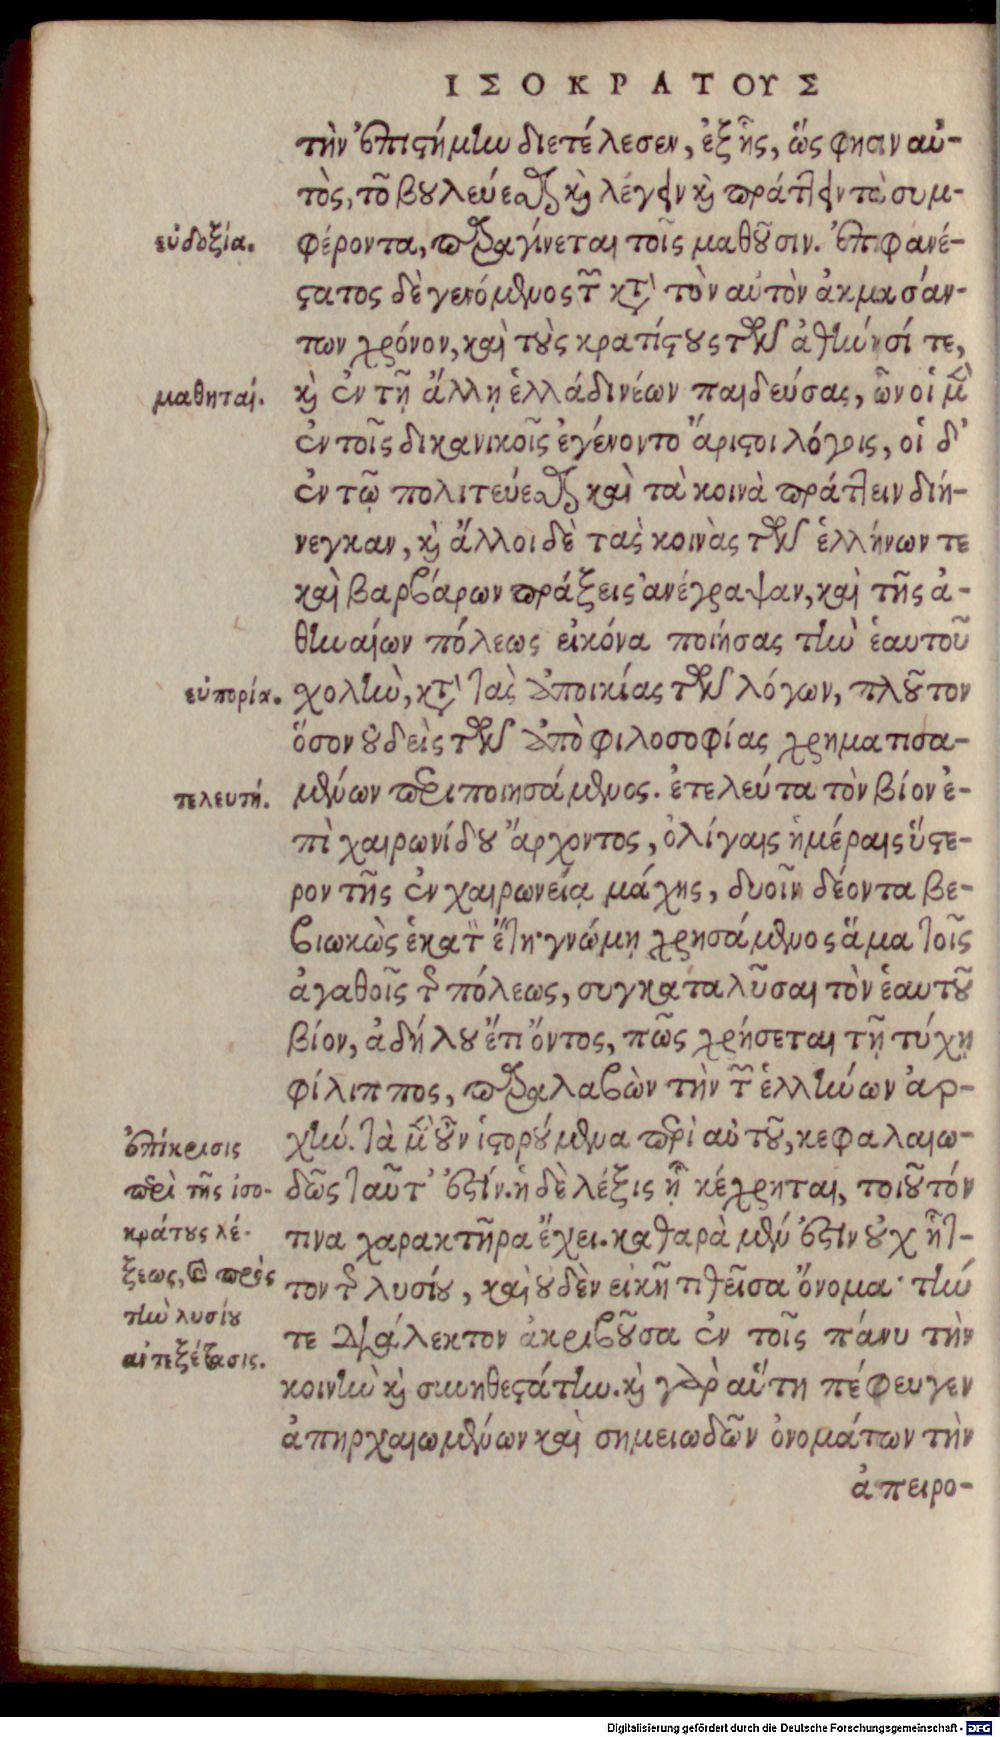 ΙΣΟΚΡΑΤΟΥΣ
τὴν ἐπιστήμην διετέλεσεν, ἐξ ἧς, ὥς φησιν αὐ-
τὸς, τὸ βουλεύεσθαι καὶ λέγειν καὶ πράττειν τὰ συμ-
εὐδοξία.
φέροντα, παραγίνεται τοῖς μαθοῦσιν. ἐπιφανέ-
στατος δὲ γενόμενος τῶν κατὰ τὸν αὐτὸν ἀκμασάν-
των χρόνον, καὶ τοὺς κρατίστους τῶν ἀθήνησί τε,
μαθηταί.
καὶ ἐν τῇ ἄλλῃ ἑλλάδι νέων παιδεύσας, ὧν οἱ μὲν
ἐν τοῖς δικανικοῖς ἐγένοντο ἄριστοι λόγοις, οἱ δ'
ἐν τῷ πολιτεύεσθαι καὶ τὰ κοινὰ πράττειν διή-
νεγκαν, καὶ ἄλλοι δὲ τὰς κοινὰς τῶν ἑλλήνων τε
καὶ βαρβάρων πράξεις ἀνέγραψαν, καὶ τῆς ἀ-
θηναίων πόλεως εἰκόνα ποιήσας τὴν ἑαυτοῦ
εὐπορία.
χολὴν, κατὰ τὰς ἀποικίας τῶν λόγων, πλοῦτον
ὅσον οὐδεὶς τῶν ἀπὸ φιλοσοφίας χρηματισα-
τελευτή.
μένων περιποιησάμενος. ἐτελεύτα τὸν βίον ἐ-
πὶ χαιρωνίδου ἄρχοντος, ὀλίγαις ἡμέραις ὕστε-
ρον τῆς ἐν χαιρωνείᾳ μάχης, δυοῖν δέοντα βε-
βιωκὼς ἑκατὸν ἔτη· γνώμῃ χρησάμενος ἅμα τοῖς
ἀγαθοῖς τῆς πόλεως, συγκαταλῦσαι τὸν ἑαυτοῦ
βίον, ἀδήλου ἔτι ὄντος, πῶς χρήσεται τῇ τύχῃ
φίλιππος, παραλαβὼν τὴν τῶν ἑλλήνων ἀρ-
χήν. τὰ μὲν οὖν ἱστορούμενα περὶ αὐτοῦ, κεφαλαιω-
ἐπίκρισις
περὶ τῆς ἰσο-
κράτους λέ-
ξεως, καὶ πρὸς
τὴν λυσίου
ἀντεξέτασις.
δῶς ταῦτ' ἐστίν. ἡ δὲ λέξις ᾗ κέχρηται, τοιοῦτόν
τινα χαρακτῆρα ἔχει. καθαρὰ μέν ἐστιν οὐχ ἧτ-
τον τῆς λυσίου, καὶ οὐδὲν εἰκῆ τιθεῖσα ὄνομα· τήν
τε διάλεκτον ἀκριβοῦσα ἐν τοῖς πάνυ τὴν
κοινὴν καὶ συνηθεστάτην. καὶ γὰρ αὕτη πέφευγεν
ἀπηρχαιωμένων καὶ σημειωδῶν ὀνομάτων τὴν
ἀπειρο-
Digitalisierung gefördert durch die Deutsche Forschungsgemeinschaft - DFG